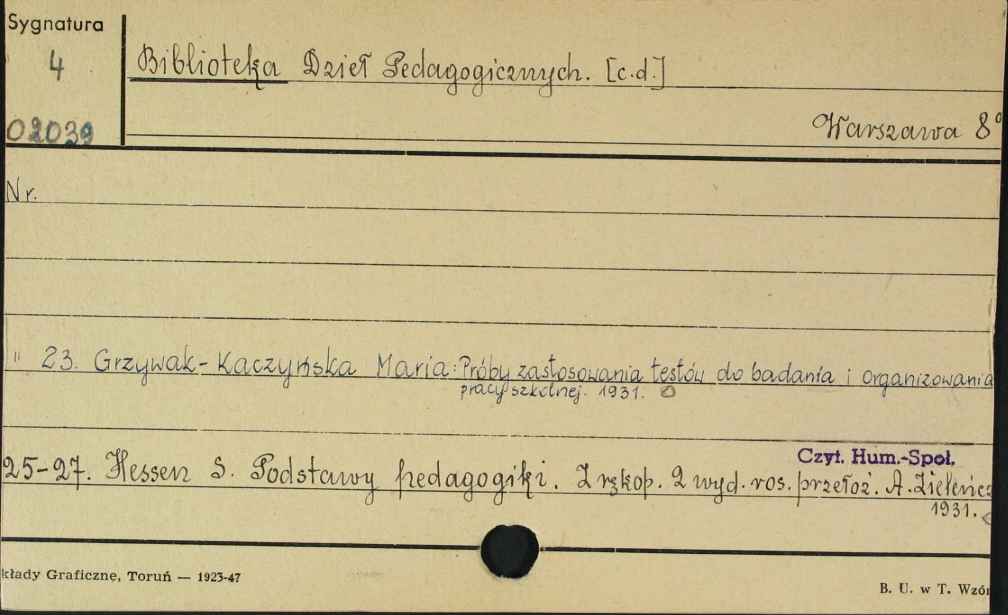 Sygnatura
4
02039
Biblioteka Dzieł Pedagogicznych. [c.d.]
Warszawa 8°
Nr.
" 23. Grzywak-Kaczyńska Maria: Próby zastosowania testów do badania i organizowania
pracy szkolnej. 1931.
Czyt. Hum.-Społ.
25-27. Hessen S. Podstawy pedagogiki. Z rękop. 2 wyd. ros. przełoż. A. Zieleńcz
1931.
kłady Graficzne, Toruń — 1923-47
B. U. w T. Wzór